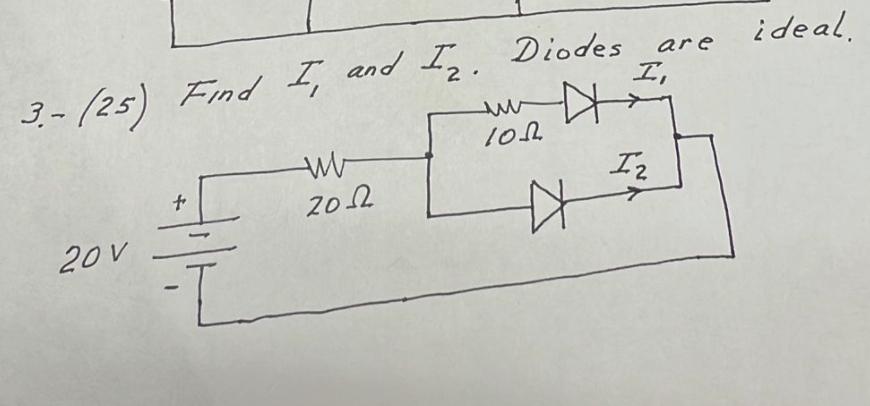 3.- (25) Find I₁ and I₂. Diodes are ideal.
I₁
10Ω
I₂
20Ω
+
20V
-